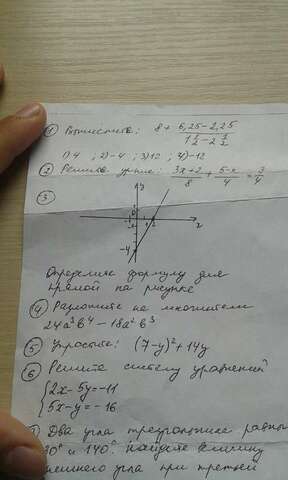 ① Вычислить: 8 + (6,25-2,25)/(1 1/2 - 2 1/2)
1) 4 ; 2) -4 ; 3) 12 ; 4) -12
② Решить ур-ие: (3x+2)/8 + (5-x)/4 = 3/4
③
y
0 2 x
-4
Определить формулу для
прямой по рисунке
④ Разложите на множители
24a³b⁴ - 18a²b³
⑤ Упростить: (7-y)²+14y
⑥ Решите систему уравнений
{2x-5y=-11
5x-y=-16
Два угла треугольника равны
и 140° найдите величину
угла при третьей